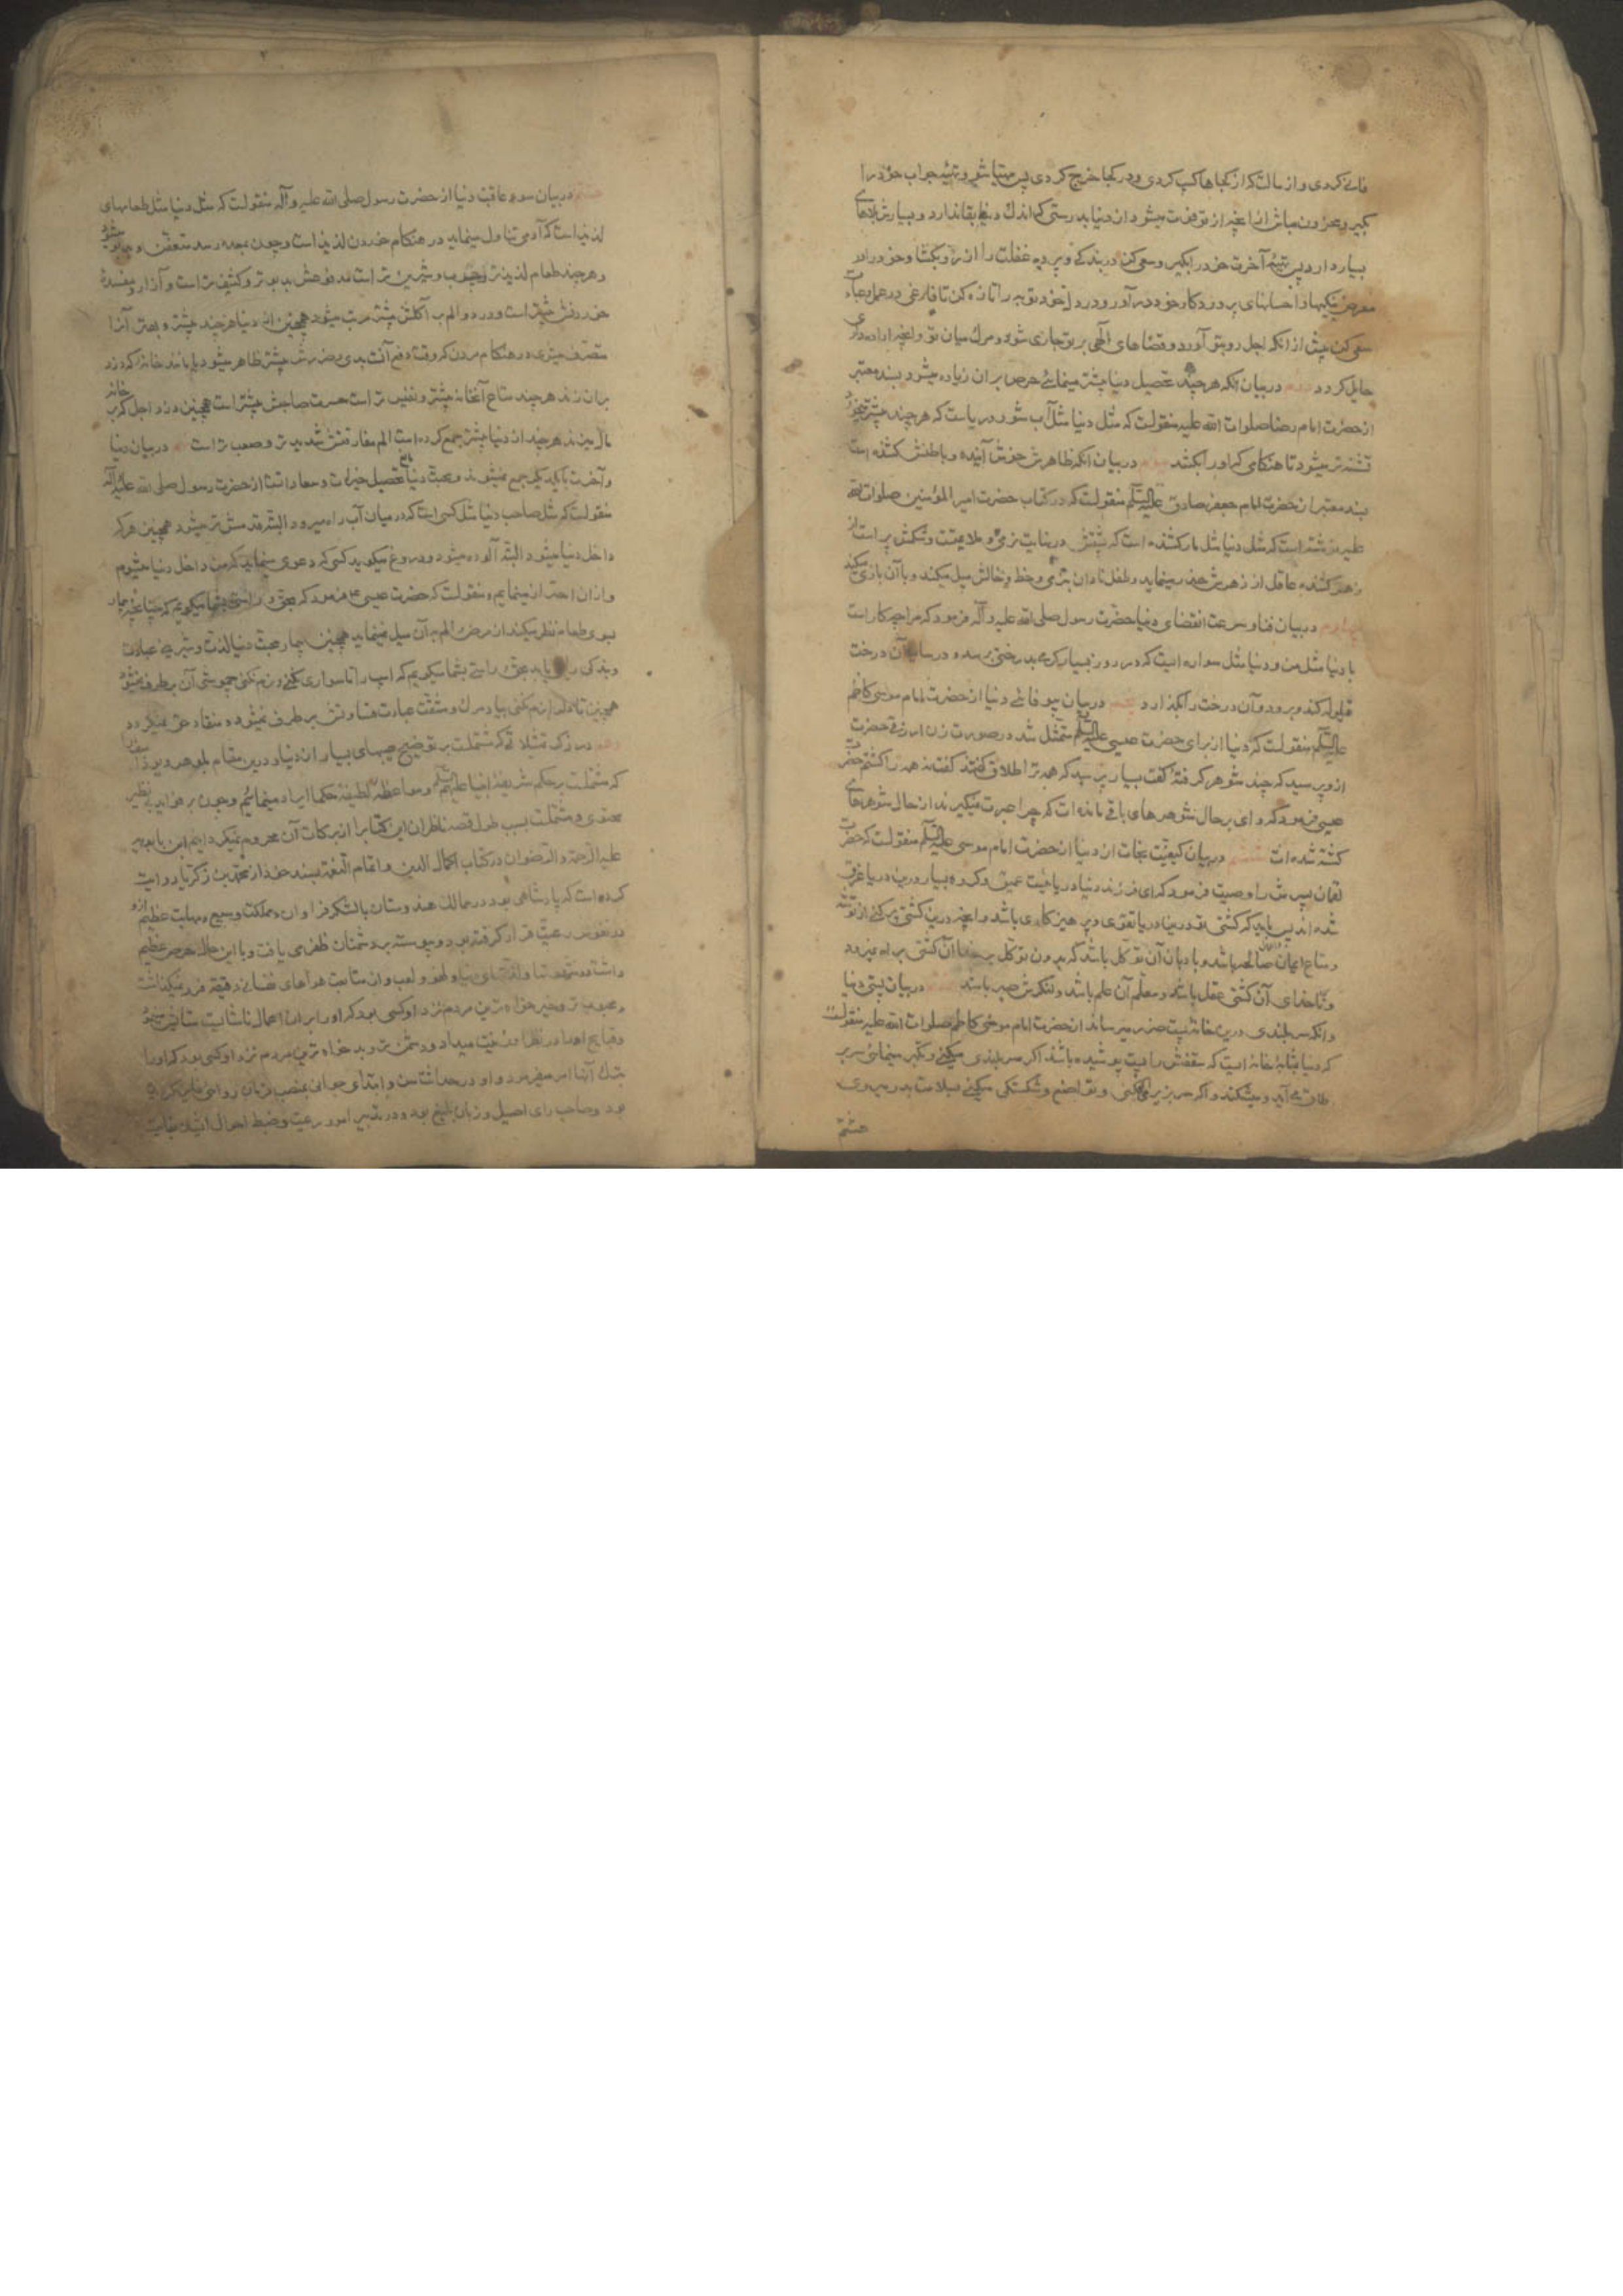 فانی کردی و از مالت که از کجاها کسب کردی و در کجا خرج کردی پس مهیا شو و تهیه جواب خود را
بگیر و محزون مباش از آنچه از تو فوت میشود از دنیا بدرستی که اندک دنیا بقا ندارد و بسیارش بلاهای
بسیار دارد پس تهیه آخرت خود را بگیر و سعی کن در بندگی و پرده غفلت را از رو بگشا و خود را در
معرض نیکیها و احسانهای پروردکار خود در آور و در دل خود توبه را تازه کن تا فارغی در عمل
سعی کن پیش از آنکه اجل رو بتو آورد و قضاهای الهی بر تو جاری شود و مرک میان تو و آنچه اراده داری
حایل کردد دویم در بیان آنکه هر چند تحصیل دنیا بیشتر مینمائی حرص بر آن زیاده میشود بسند معتبر
از حضرت امام رضا صلوات الله علیه منقولست که مثل دنیا مثل آب شور دریاست که هر چند بیشتر میخورد
تشنه تر میشود تا هنکامی که او را بکشد سیوم در بیان آنکه ظاهرش خوش آینده و باطنش کشنده است
بسند معتبر از حضرت امام جعفر صادق علیه السلم منقولست که در کتاب حضرت امیر المؤمنین صلوات الله
علیه نوشته است که مثل دنیا مثل مار کشنده است که پشتش در نهایت نرمی و ملایمتست و شکمش پر است از
زهر کشنده عاقل از زهرش حذر مینماید و طفل نادان بنرمی و خط و خالش میل میکند و با آن بازی میکند
چهارم در بیان فنا و سرعت انقضای دنیا حضرت رسول صلی الله علیه و آله فرمود که مرا چه کار است
با دنیا مثل من و دنیا مثل سواره ایست که در روز بسیار کرمی بدرختی برسد و در سایه آن درخت
قیلوله کند و برود و آن درخت را بگذارد پنجم در بیان بیوفائی دنیا از حضرت امام موسی کاظم
علیه السلم منقولست که دنیا از برای حضرت عیسی علیه السلم متمثل شد در صورت زن ازرقی حضرت
از او پرسید که چند شوهر کرفتهٔ کفت بسیار پرسید که همه ترا طلاق کفتند کفت نه همه را کشتم حضرت
عیسی فرمود که وای بر حال شوهرهای باقی مانده ات که چرا عبرت نمیگیرند از حال شوهرهای
کشته شده ات ششم در بیان کیفیت نجات از دنیا از حضرت امام موسی علیه السلم منقولست که حضرت
لقمان پسرش را وصیت فرمود که ای فرزند دنیا دریائیست عمیق و کروه بسیار درین دریا غرق
شده اند پس باید که کشتی تو درین دریا تقوی و پرهیزکاری باشد و آنچه درین کشتی پر کنی از توشه
و متاع ایمان باشد و بادبان آن توکل باشد که بدون توکل بر خدا آن کشتی براه نمیرود
و ناخدای آن کشتی عقل باشد و معلم آن علم باشد و لنکرش صبر باشد هفتم در بیان پستی دنیا
و آنکه سربلندی درین خانه پست ضرر میرساند از حضرت امام موسی کاظم صلوات الله علیه منقولست
که دنیا بمثابهٔ خانه ایست که سقفش را پست پوشیده باشند اکر سربلندی میکنی و تکبر مینمائی سر بر
طاق می آید و میشکند و اکر سر بزیر می افکنی و تواضع و شکستکی میکنی بسلامت بدر میروی
هشتم
هشتم در بیان سوء عاقبت دنیا از حضرت رسول صلی الله علیه و آله منقولست که مثل دنیا مثل طعامهای
لذیذ است که آدمی تناول مینماید در هنکام خوردن لذیذ است و چون بمعده رسد متعفن و بدبو میشود
و هر چند طعام لذیذتر و چرب و شیرین تر است مدفوعش بدبوتر و کثیف تر است و آزار و مفسدهٔ
خوردنش بیشتر است و درد و الم بر آکلش بیشتر مرتب میشود همچنین از دنیا هر چند بیشتر و بهتر آنرا
متصرف میشوی در هنکام مردن که وقت دفع آنست بدی و ضررش بیشتر ظاهر میشود یا مانند خانه که دزد
بر آن زند هر چند متاع آنخانه بیشتر و نفیس تر است حسرت صاحبش بیشتر است همچنین دزد اجل که بر خانه
مال میزند هر چند از دنیا بیشتر جمع کرده است الم مفارقتش شدیدتر و صعب تر است نهم در بیان دنیا
و آخرت با یکدیگر جمع نمیشوند و محبت دنیا مانع تحصیل خیرات و سعادات است از حضرت رسول صلی الله علیه و آله
منقولست که مثل صاحب دنیا مثل کسی است که در میان آب راه میرود البته قدمش تر میشود همچنین هر که
داخل دنیا میشود البته آلوده میشود و دروغ میکوید کسی که دعوی مینماید که من داخل دنیا میشوم
و از آن احتراز مینمایم و منقولست که حضرت عیسی ع فرمود که بحق و راستی بشما میکویم که چنانچه بیمار
بسوی طعام نظر میکند از مرض و الم به آن میل نمینماید همچنین بیمار محبت دنیا لذت و شیرینی عبادت
و بندکی را نمی یابد بحق و راستی بشما میکویم که اسب را تا سواری نکنی و رم نکنی چموشی آن برطرف نمیشود
همچنین تا دلها را نرم نکنی بیاد مرک و مشقت عبادت قساوتش برطرف نمیشود و منقاد حق نمیکردد
دهم در ذکر تمثیلاتی که مشتملست بر توضیح عیبهای بسیار از دنیا و درین مقام بلوهر و یوذاسف
که مشتملست بر حکم شریفه انبیا علیهم السلم و مواعظ لطیفه حکما ایراد مینمائیم و چون بر فواید بی نظیر
محتوی و مشتملست بسبب طول قصه ناظران این کتاب را از برکات آن محروم نمیکردانیم ابن بابویه
علیه الرحمة و الرضوان در کتاب اکمال الدین و اتمام النعمة بسند خود از محمد بن زکریا روایت
کرده است که پادشاهی بود در ممالک هندوستان با لشکر فراوان و مملکت وسیع و مهابت عظیم از او
در نفوس رعیت قرار کرفته بود و پیوسته بر دشمنان ظفر می یافت و با این حال حرص عظیم
داشت در شهوتها و لذتهای دنیا و لهو و لعب و از متابعت هواهای نفسانی دقیقهٔ فرو نمیکذاشت
و محبوب تر و خیرخواه ترین مردم نزد او کسی بود که او را بر آن اعمال ناشایست ستایش مینمود
و قبایح او را در نظر او زینت میداد و دشمن تر و بدخواه ترین مردم نزد او کسی بود که او را
بترک آنها امر میفرمود و او در حداثت سن و ابتدای جوانی بمنصب فرمان روائی فایز کردیده
بود و صاحب رای اصیل و زبان بلیغ بود و در تدبیر امور رعیت و ضبط احوال ایشان بغایت